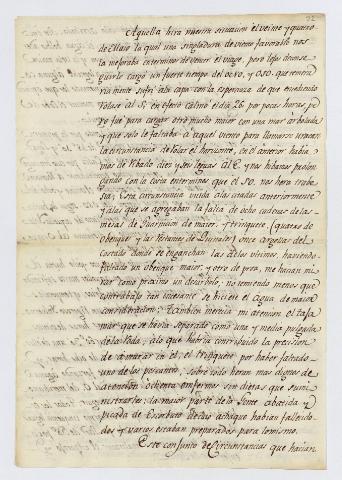 22
Aquella hera nuestra situacion el veinte y quatro
de Maio la qual una singladura de viento favorable nos
la mejoraba en terminos de vencer el viage, pero lejos de conse
guirlo cargó un fuerte tiempo del Oeste, y OSO. que
mente sufri ala capa con la esperanza de que
al S. en efecto calmó el dia 26 por pocas horas, p.º
fue para cargar otro mucho maior con una mar arbolada
y que solo le faltaba a aquel viento para llamarse uracan
la circunstancia de Tolar el horizonte, en el anterior habia
mos derribado diez y seis leguas al E. y nos hibamos prolon
gando con la costa en terminos que el SO. nos hera traba
sia; Esta circunstancia unida alas citadas anteriormente
y alas que se agregaban la falta de ocho cadenas de las
mesas de Guarnicion de maior, y trinquete, (quatro de
obenques y las restantes de Brandales) once
Costado donde se enganchan las delos vientos, haviendo
faltado un obenque maior, y otro de proa, me hacian mi
rar como proximo un desarbolo, no temiendo menos que
contrabajo tan incesante se hiciese el agua de maior
consideracion; Tambien merecia mi atencion el taja
mar que se havia separado como una y media pulgada
de la Roda, alo que habria contribuido la precision
de amarar en el, el trinquete por haber faltado
uno de los pescantes, sobre todo heran mas dignos de
atencion, ochenta enfermos sin dietas que sumi
nistrarles; la maior parte de la Gente abatida y
picada de Escorbuto de cuio achaque habian falleci
do y varios estaban preparados para lo mismo.
Este conjunto de circunstancias que hacian